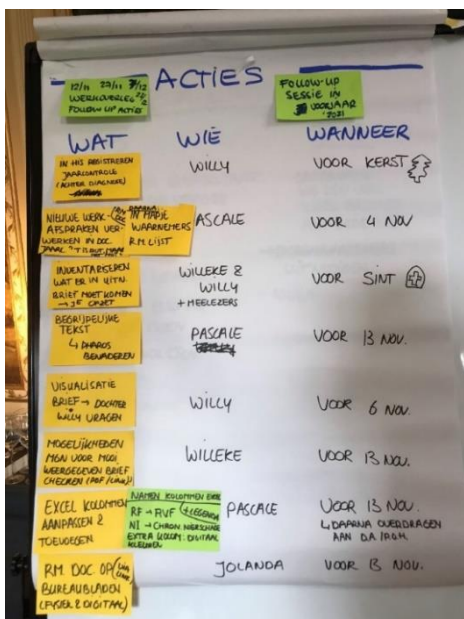 ACTIES
12/11 23/11 7/12
WERKOVERLEG
FOLLOW UP ACTIES
FOLLOW-UP
SESSIE IN
VOORJAAR
'2021
WAT
WIE
WANNEER
IN HIS REGISTREREN
JAARCONTROLE
(ACHTER DIAGNOSE)
WILLY
VOOR KERST
NIEUWE WERK-
AFSPRAKEN VER-
WERKEN IN DOC
IN MAPJE
WAARNEMERS
R.M. LIJST
PASCALE
VOOR 4 NOV
INVENTARISEREN
WAT ER IN UITN.
BRIEF MOET KOMEN
→ 1E OPZET
WILLEKE &
WILLY
+ MEELEZERS
VOOR SINT
BEGRIJPELIJKE
TEKST
↳ PHAROS
BENADEREN
PASCALE
VOOR 13 NOV.
VISUALISATIE
BRIEF → DOCHTER
WILLY VRAGEN
WILLY
VOOR 6 NOV.
MOGELIJKHEDEN
MGN VOOR MOOI
WEERGEGEVEN BRIEF
CHECKEN
WILLEKE
VOOR 13 NOV.
EXCEL KOLOMMEN
AANPASSEN &
TOEVOEGEN
NAMEN KOLOMMEN EXCEL
RF → RVF + LEGENDA
NI → CHRON NIERSCHADE
EXTRA KOLOM: DIGITAAL
KLEUREN
PASCALE
VOOR 13 NOV.
↳ DAARNA OVERDRAGEN
AAN DA
R.M. DOC OP
BUREAUBLADEN
(FYSIEK & DIGITAAL)
JOLANDA
VOOR 13 NOV.